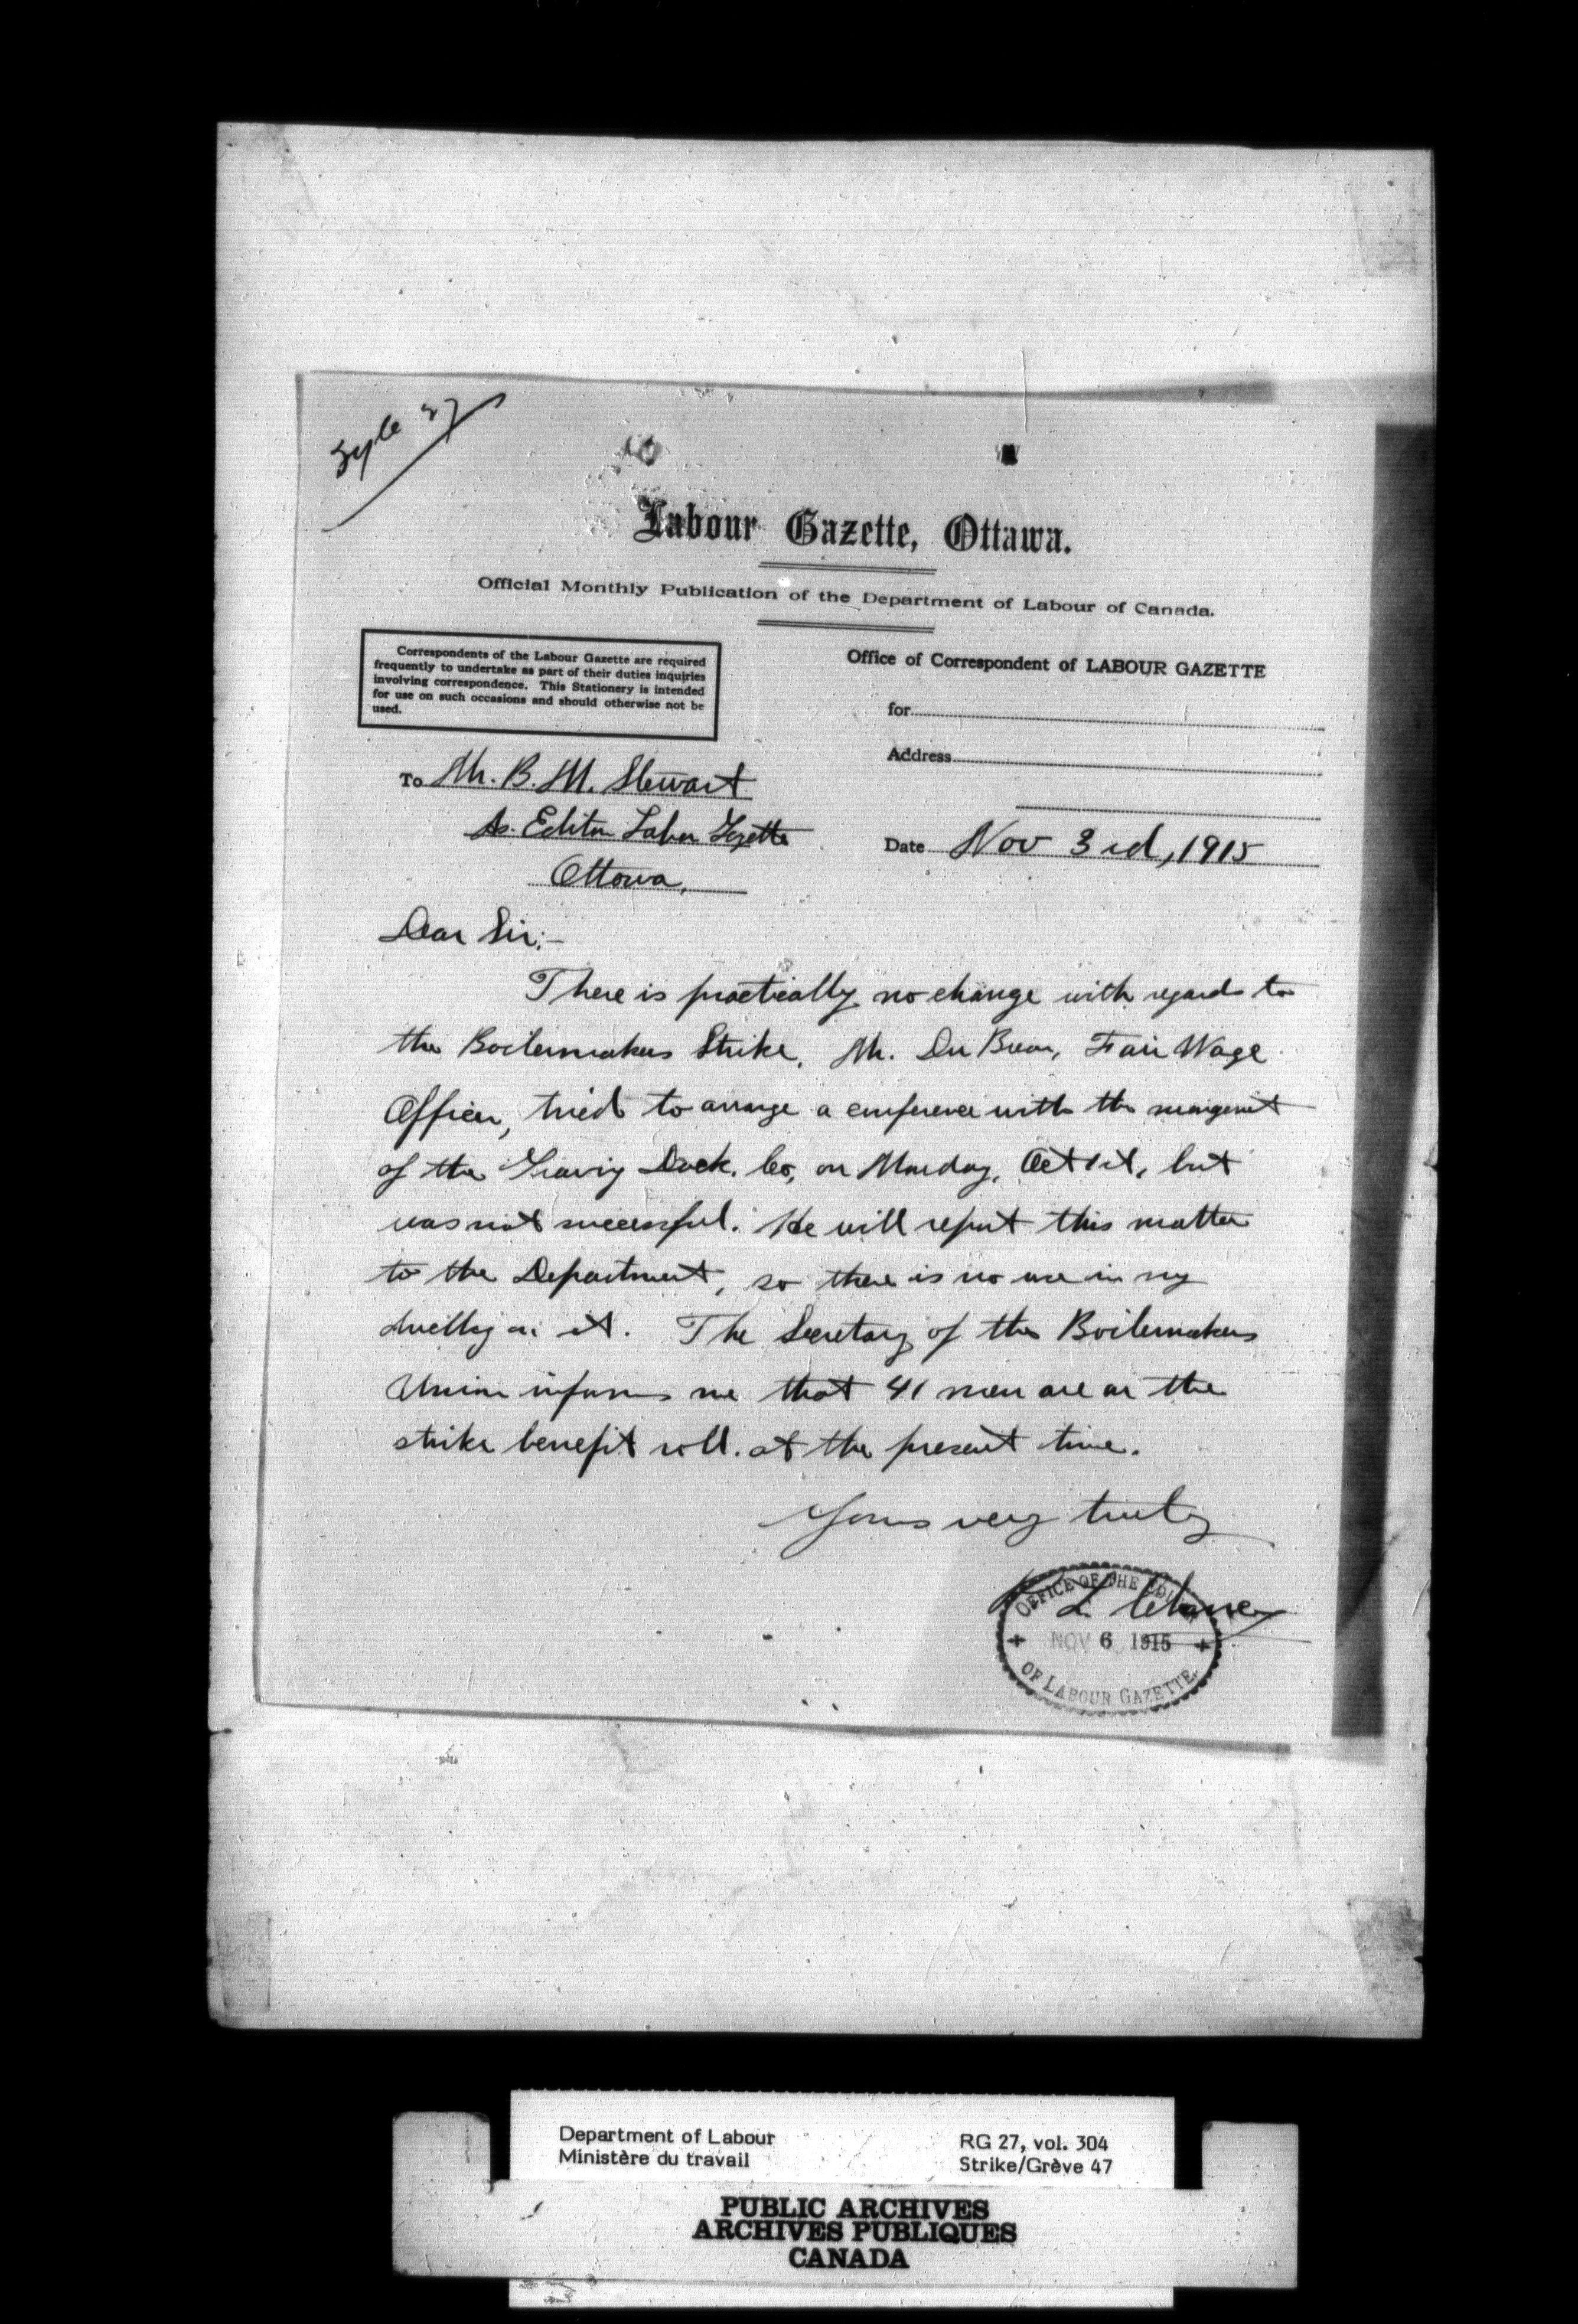 Labour Gazette, Ottawa.
Official Monthly Publication of the Department of Labour of Canada.
Correspondents of the Labour Gazette are required
frequently to undertake as part of their duties inquiries
involving correspondence. This Stationery is intended
for use on such occasions and should otherwise not be
used.
Office of Correspondent of LABOUR GAZETTE
for
Address
To Mr. B. M. Stewart
As. Editor Labor Gazette
Ottowa,
Date Nov 3rd, 1915
Dear Sir:-
There is practically no change with regards to
the Boilermakers Strike. Mr. Du Breau, Fair Wage
Officer, tried to arrange a conference with the management
of the Graving Dock. Co, on Monday, Oct 1st, but
was not successful. He will report this matter
to the Department, so there is no use in my
dwelling on it. The Secretary of the Boilermakers
Union informs me that 41 men are on the
strike benefit roll. at the present time.
Yours very truly
OFFICE OF THE EDITOR
NOV 6 1915
OF LABOUR GAZETTE
Department of Labour
Ministère du travail
RG 27, vol. 304
Strike/Grève 47
PUBLIC ARCHIVES
ARCHIVES PUBLIQUES
CANADA